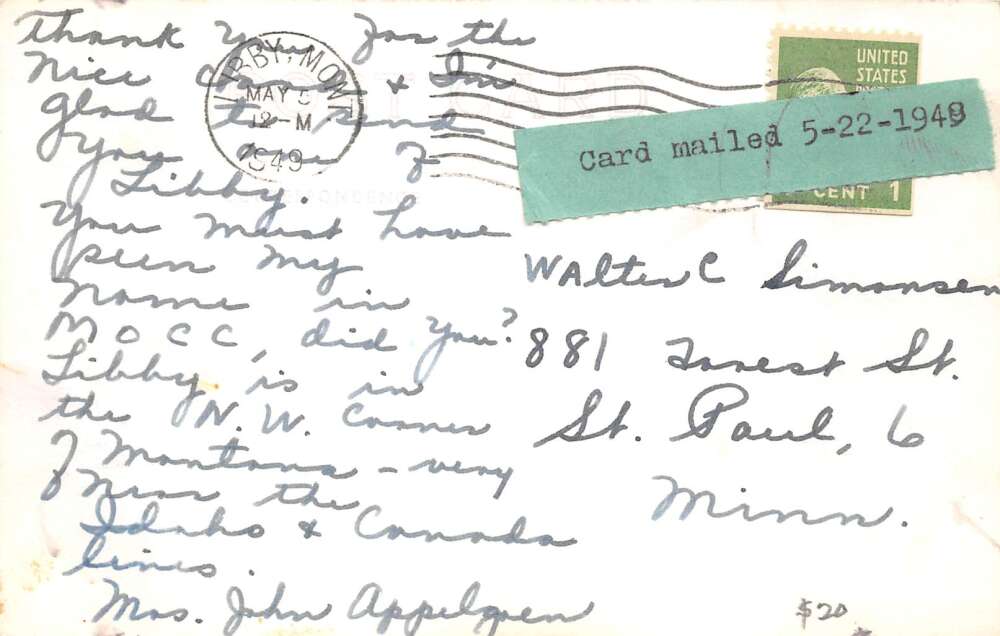 Thank you for the
Nice Card & I'm
glad to send
you one of
Libby.
You must have
seen my
name in
MOCC, did you?
Libby is in
the N.W. Corner
of Montana - very
near the
Idaho & Canada
lines.
Mrs. John Appelgren
LIBBY, MONT.
MAY 5
12-M
1949
POST CARD
CORRESPONDENCE
UNITED
STATES
Card mailed 5-22-1948
CENT 1
Walter C Simonsen
881 Forest St.
St. Paul, 6
Minn.
$20